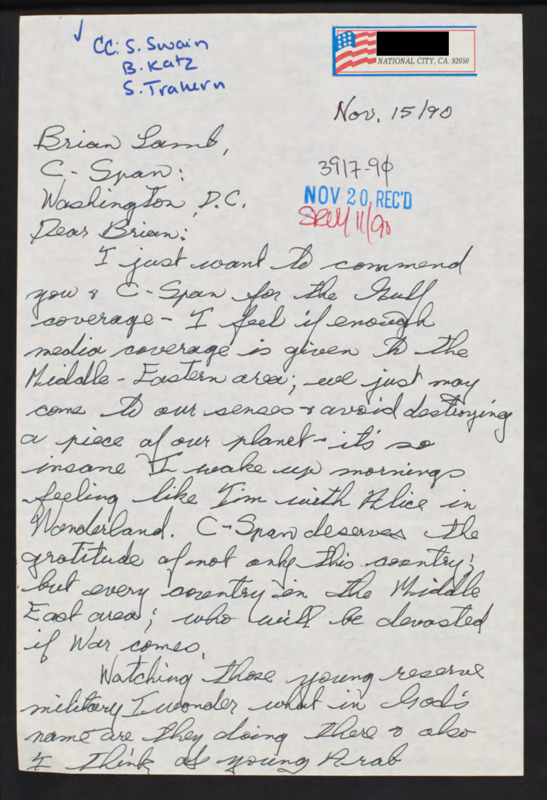 CC: S. Swain
B. Katz
S. Trahern
NATIONAL CITY, CA. 92050
Nov. 15/90
Brian Lamb,
C-Span:
Washington, D.C.
3917-90
NOV 20 REC'D
Dear Brian:
I just want to commend
you & C-Span for the Gulf
coverage - I feel if enough
media coverage is given to the
Middle-Eastern area; we just may
come to our senses & avoid destroying
a piece of our planet - it's so
insane I wake up mornings
feeling like I'm with Alice in
Wonderland. C-Span deserves the
gratitude of not only this country;
but every country in the Middle
East area; who will be devasted
if War comes.
Watching those young reserve
military I wonder what in God's
name are they doing there & also
I think of young Arab